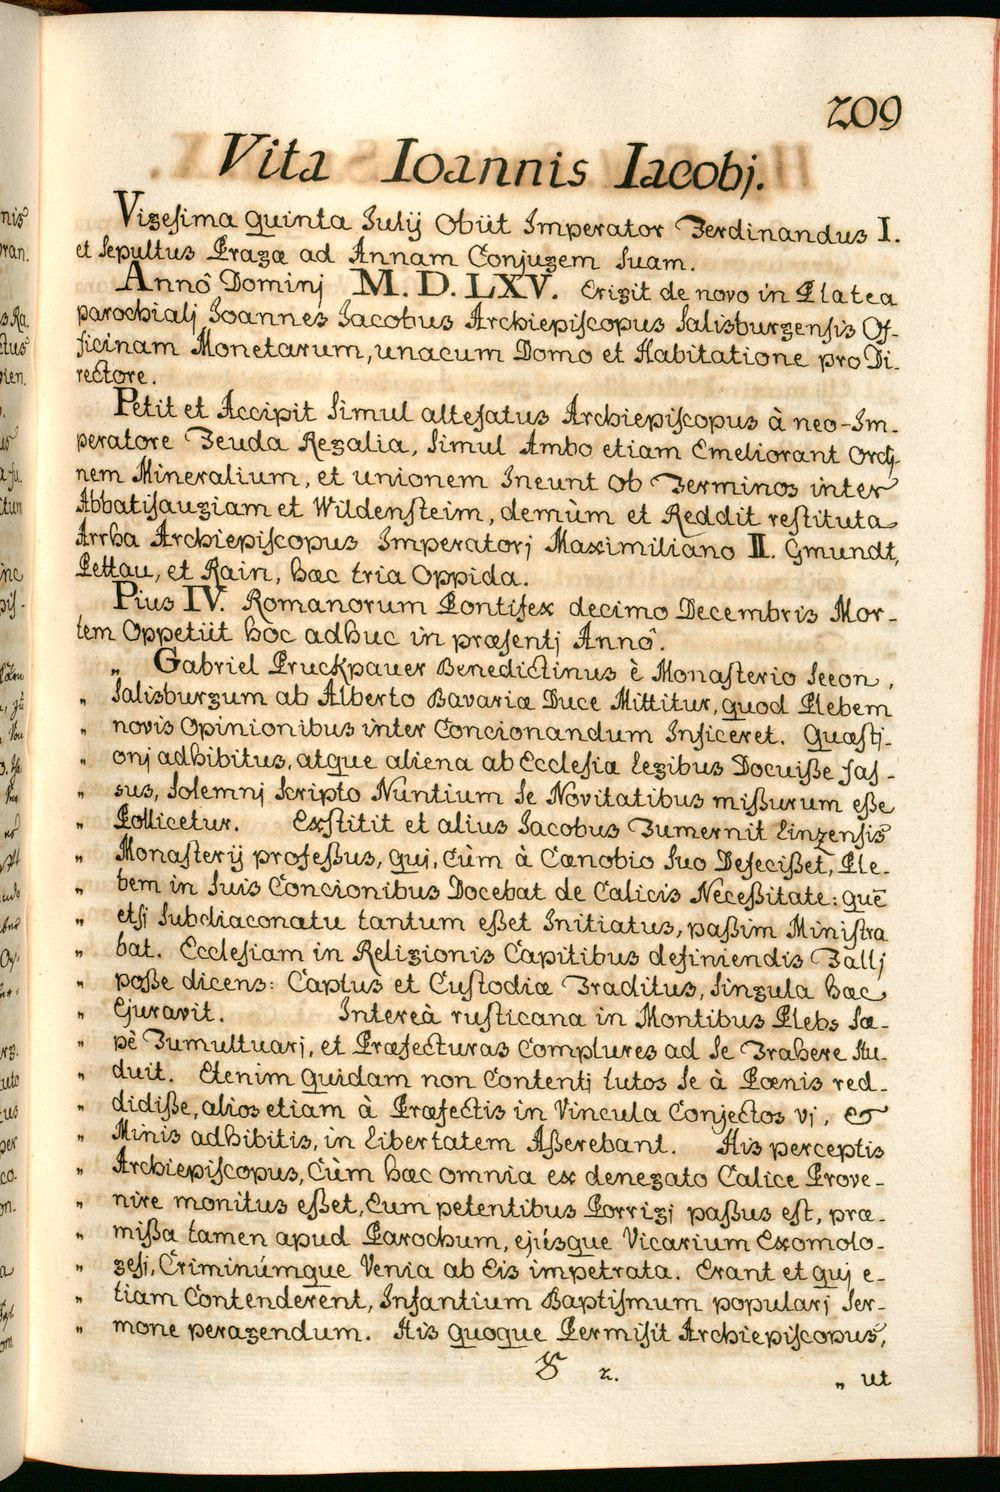 209
Vita Ioannis Iacobj.
Vigesima quinta Julij Obiit Imperator Ferdinandus I.
et Sepultus Pragæ ad Annam Conjugem suam.
Annô Dominj M.D.LXV. Erigit de novo in Platea
parochialj Joannes Jacobus Archiepiscopus Salisburgensis Of-
ficinam Monetarum, unacum Domo et Habitatione pro Di-
rectore.
Petit et Accipit Simul altefatus Archiepiscopus à neo-Im-
peratore Feuda Regalia, simul Ambo etiam Emeliorant Ordj-
nem Mineralium, et unionem Ineunt Ob Terminos inter
Abbatisaugiam et Wildensteim, demùm et Reddit restituta
Arrha Archiepiscopus Imperatorj Maximiliano II. Gmundt,
Pettau, et Rain, hæc tria Oppida.
Pius IV. Romanorum Pontifex decimo Decembris Mor-
tem Oppetiit hòc adhuc in præsentj Annô.
„ Gabriel Pruckpauer Benedictinus è Monasterio Seeon,
„ Salisburgum ab Alberto Bavariæ Duce Mittitur, quod Plebem
„ novis Opinionibus inter Concionandum Inficeret. Quæstj-
„ onj adhibitus, atque aliena ab Ecclesiæ Legibus Docuiße fas-
„ sus, Solemnj Scripto Nuntium se Novitatibus mißurum eße
„ Pollicetur. Exstitit et alius Jacobus Tumernit Linzensis
„ Monasterij profeßus, quj, Cùm à Cœnobio Suo Defecißet, Ple-
„ bem in suis Concionibus Docebat de Calicis Neceßitate: quē
„ etsi Subdiaconatu tantum eßet Initiatus, paßim Ministra
„ bat. Ecclesiam in Religionis Capitibus definiendis Fallj
„ poße dicens: Captus et Custodiæ Traditus, singula hæc
„ Ejuravit. Intereà rusticana in Montibus Plebs Sæ-
„ pè Tumultuarj, et Præfecturas Complures ad se Trahere stu-
„ duit. Etenim quidam non Contentj tutos se à Pœnis red-
„ didiße, alios etiam à Præfectis in Vincula Conjectos vj, &
„ Minis adhibitis, in Libertatem Aßerebant. His perceptis
„ Archiepiscopus, Cùm hæc omnia ex denegato Calice Prove-
„ nire monitus eßet, Eum petentibus Porrigj paßus est, præ-
„ mißa tamen apud Parochum, ejúsque Vicarium Exomolo-
„ gesi, Criminúmque Venia ab Eis impetrata. Erant et quj e-
„ tiam Contenderent, Infantium Baptismum popularj Ser-
„ mone peragendum. His quoque Permisit Archiepiscopus,
2.
„ ut